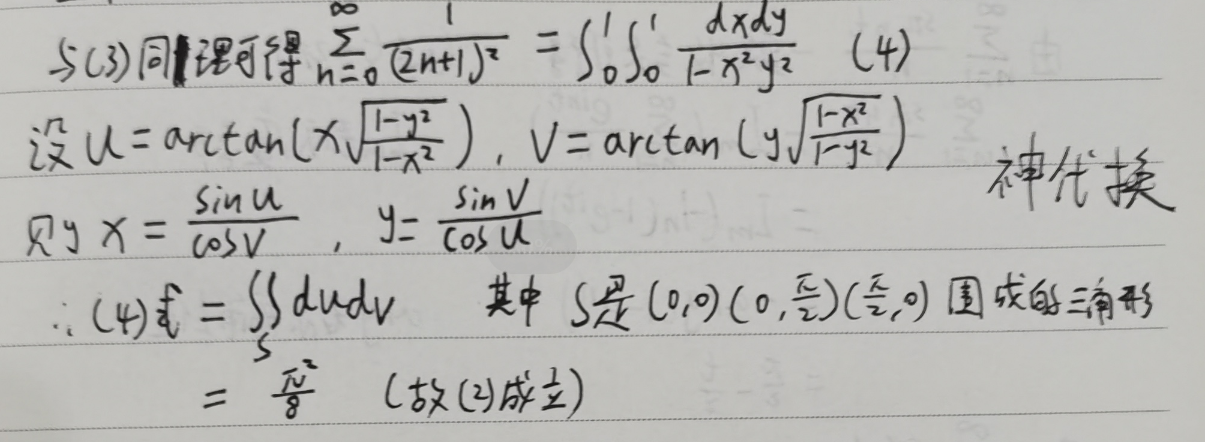 与(3)同理可得 ∑_{n=0}^{∞} 1/(2n+1)² = ∫₀¹∫₀¹ dxdy/(1-x²y²) (4)
设 u = arctan(x√((1-y²)/(1-x²))), V = arctan(y√((1-x²)/(1-y²)))
神代换
则 x = sin u/cos V, y = sin V/cos u
∴ (4)式 = ∬_S dudv 其中 S是(0,0)(0,π/2)(π/2,0)围成的三角形
= π²/8 (故(2)成立)